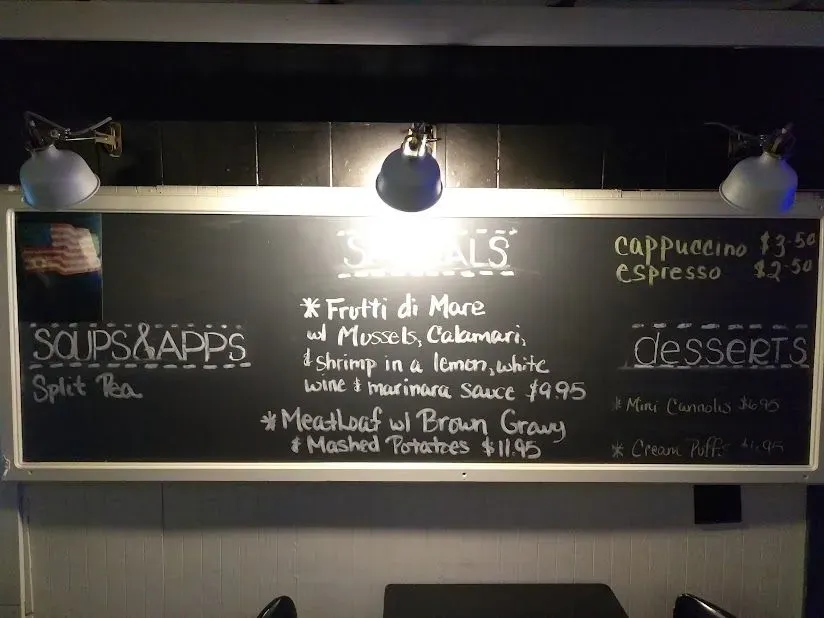 SOUPS&APPS
Split Pea
SPECIALS
* Frutti di Mare
w/ Mussels, Calamari,
& Shrimp in a lemon, white
wine & marinara sauce $9.95
* Meatloaf w/ Brown Gravy
& Mashed Potatoes $11.95
cappuccino $3.50
espresso $2.50
desserts
* Mini Cannolis $6.95
* Cream Puffs